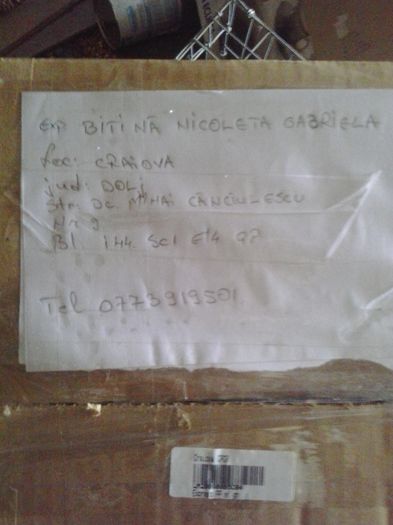 Exp BITINĂ NICOLETA GABRIELA
Loc: CRAIOVA
jud: DOLJ
Str: Dr MIHAI CĂNCIULESCU
Nr 9
Bl. I44 Sc1 Et4
Tel 0773919501